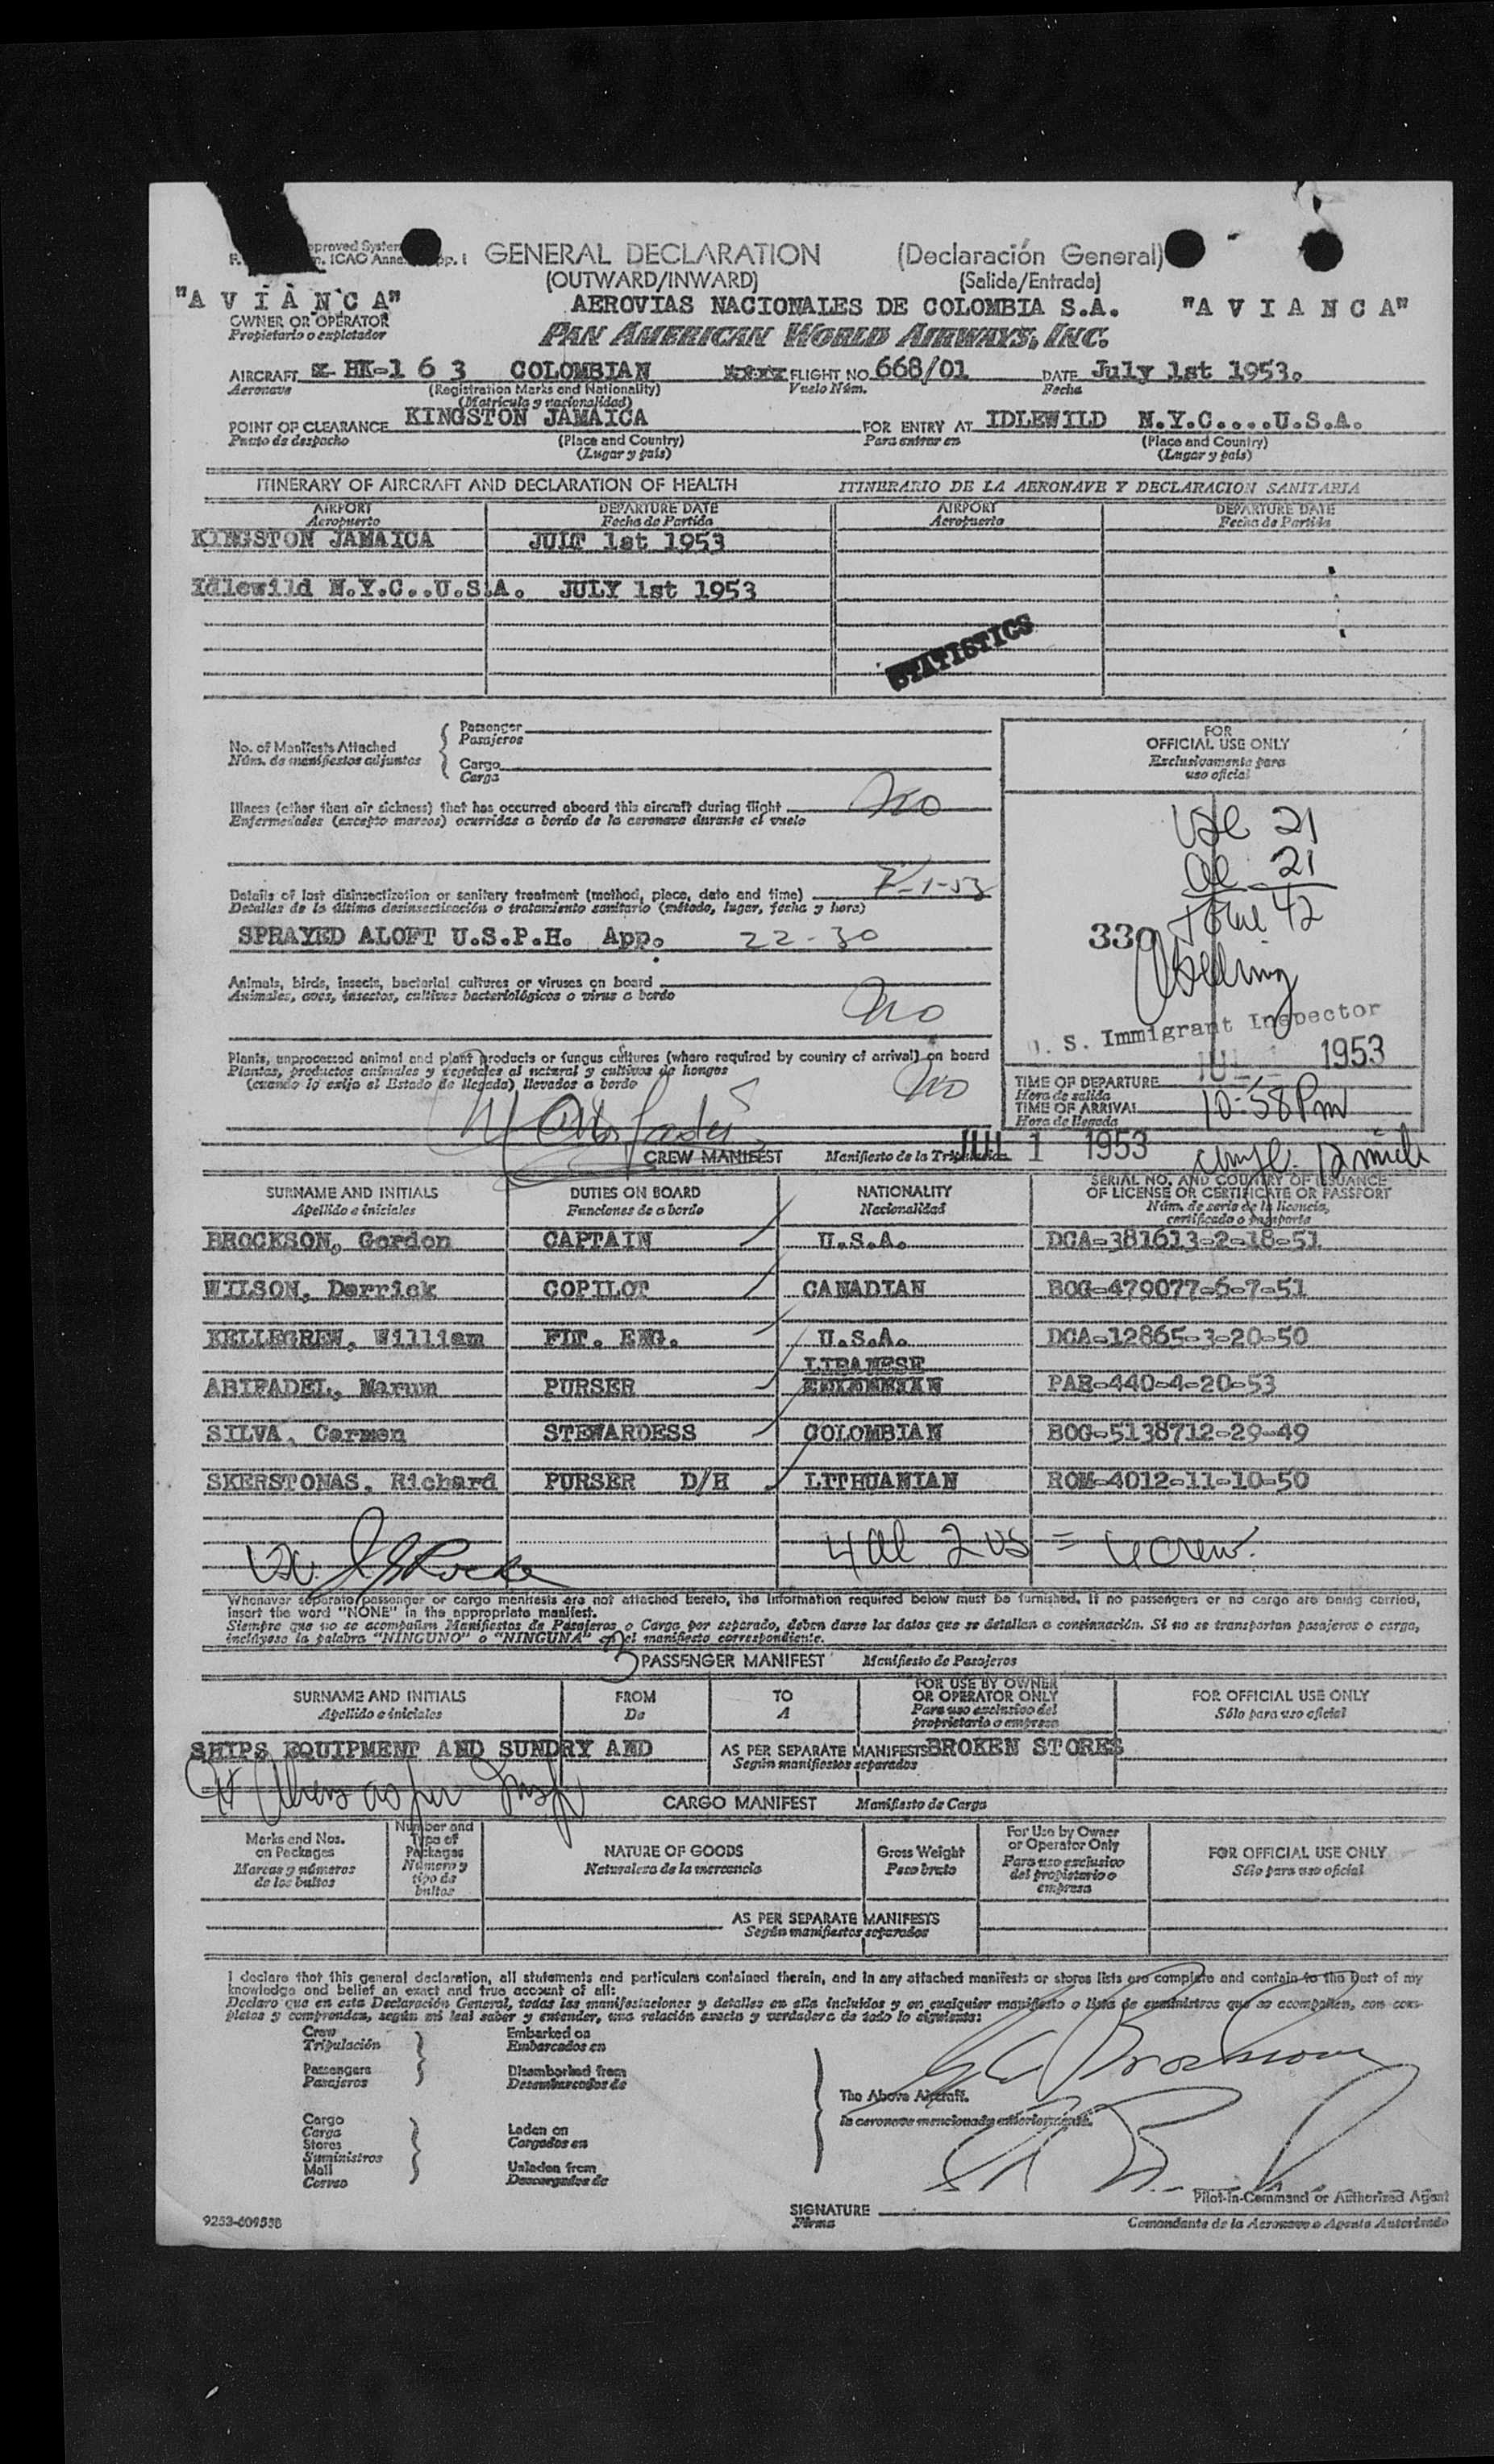 GENERAL DECLARATION (Declaración General)
(OUTWARD/INWARD) (Salida/Entrada)
"A V I A N C A" AEROVIAS NACIONALES DE COLOMBIA S.A. "A V I A N C A"
OWNER OR OPERATOR
Propietario o explotador
PAN AMERICAN WORLD AIRWAYS, INC.
AIRCRAFT HK-1 6 3 COLOMBIAN FLIGHT NO. 668/01 DATE July 1st 1953.
Aeronave (Registration Marks and Nationality) Vuelo Núm. Fecha
(Matrícula y nacionalidad)
POINT OF CLEARANCE KINGSTON JAMAICA FOR ENTRY AT IDLEWILD N.Y.C....U.S.A.
Punto de despacho (Place and Country) Para entrar en (Place and Country)
(Lugar y país) (Lugar y país)
ITINERARY OF AIRCRAFT AND DECLARATION OF HEALTH ITINERARIO DE LA AERONAVE Y DECLARACION SANITARIA
AIRPORT DEPARTURE DATE AIRPORT DEPARTURE DATE
Aeropuerto Fecha de Partida Aeropuerto Fecha de Partida
KINGSTON JAMAICA JULT 1st 1953
Idlewild N.Y.C..U.S.A. JULY 1st 1953
STATISTICS
No. of Manifests Attached
Núm. de manifiestos adjuntos
Passenger
Pasajeros
Cargo
Carga
FOR
OFFICIAL USE ONLY
Exclusivamente para
uso oficial
Illness (other than air sickness) that has occurred aboard this aircraft during flight No
Enfermedades (excepto mareos) ocurridas a bordo de la aeronave durante el vuelo
Details of last disinsectization or sanitary treatment (method, place, date and time) 7-1-53
Detalles de la última desinsectización o tratamiento sanitario (método, lugar, fecha y hora)
SPRAYED ALOFT U.S.P.H. App. 22-30
Animals, birds, insects, bacterial cultures or viruses on board
Animales, aves, insectos, cultivos bacteriológicos o virus a bordo
No
Plants, unprocessed animal and plant products or fungus cultures (where required by country of arrival) on board
Plantas, productos animales y vegetales al natural y cultivos de hongos
(cuando lo exija el Estado de llegada) llevados a bordo
No
21
21
Total 42
330
U. S. Immigrant Inspector
JUL 1 1953
TIME OF DEPARTURE
Hora de salida
TIME OF ARRIVAL 10:58 Pm
Hora de llegada
CREW MANIFEST Manifiesto de la Tripulación JUL 1 1953
SURNAME AND INITIALS DUTIES ON BOARD NATIONALITY SERIAL NO. AND COUNTRY OF ISSUANCE
OF LICENSE OR CERTIFICATE OR PASSPORT
Apellido e iniciales Funciones de a bordo Nacionalidad Núm. de serie de la licencia,
certificado o pasaporte
BROCKSON, Gordon CAPTAIN U.S.A. DCA-381613-2-18-51
WILSON, Derrick COPILOT CANADIAN BOG-479077-6-7-51
KELLEGREW, William FLT. ENG. U.S.A. DCA-12865-3-20-50
LIBANESE
ABIFADEL, Marun PURSER PAR-440-4-20-53
SILVA, Carmen STEWARDESS COLOMBIAN BOG-5138712-29-49
SKERSTONAS, Richard PURSER D/H LITHUANIAN ROM-4012-11-10-50
4 al 2 us = 6 crew.
Whenever separate passenger or cargo manifests are not attached hereto, the information required below must be furnished. If no passengers or no cargo are being carried,
insert the word "NONE" in the appropriate manifest.
Siempre que no se acompañen Manifiestos de Pasajeros o Carga por separado, deben darse los datos que se detallan a continuación. Si no se transportan pasajeros o carga,
inclúyase la palabra "NINGUNO" o "NINGUNA" en el manifiesto correspondiente.
PASSENGER MANIFEST Manifiesto de Pasajeros
SURNAME AND INITIALS FROM TO FOR USE BY OWNER
OR OPERATOR ONLY FOR OFFICIAL USE ONLY
Apellido e iniciales De A Para uso exclusivo del
propietario o empresa Sólo para uso oficial
SHIPS EQUIPMENT AND SUNDRY AND AS PER SEPARATE MANIFESTS BROKEN STORES
Según manifiestos separados
CARGO MANIFEST Manifiesto de Carga
Marks and Nos.
on Packages
Marcas y números
de los bultos
Number and
Type of
Packages
Número y
tipo de
bultos
NATURE OF GOODS
Naturaleza de la mercancía
Gross Weight
Peso bruto
For Use by Owner
or Operator Only
Para uso exclusivo
del propietario o
empresa
FOR OFFICIAL USE ONLY
Sólo para uso oficial
AS PER SEPARATE MANIFESTS
Según manifiestos separados
I declare that this general declaration, all statements and particulars contained therein, and in any attached manifests or stores lists are complete and contain to the best of my
knowledge and belief an exact and true account of all:
Declaro que en esta Declaración General, todas las manifestaciones y detalles en ella incluidos y en cualquier manifiesto o lista de suministros que se acompañen, son com-
pletos y comprenden, según mi leal saber y entender, una relación exacta y verdadera de todo lo siguiente:
Crew Embarked on
Tripulación Embarcados en
Passengers Disembarked from
Pasajeros Desembarcados de
The Above Aircraft.
la aeronave mencionada anteriormente.
Cargo
Carga
Stores
Suministros
Mail
Correo
Laden on
Cargados en
Unladen from
Descargados de
Pilot-in-Command or Authorized Agent
SIGNATURE
Firma Comandante de la Aeronave o Agente Autorizado
9253-609538